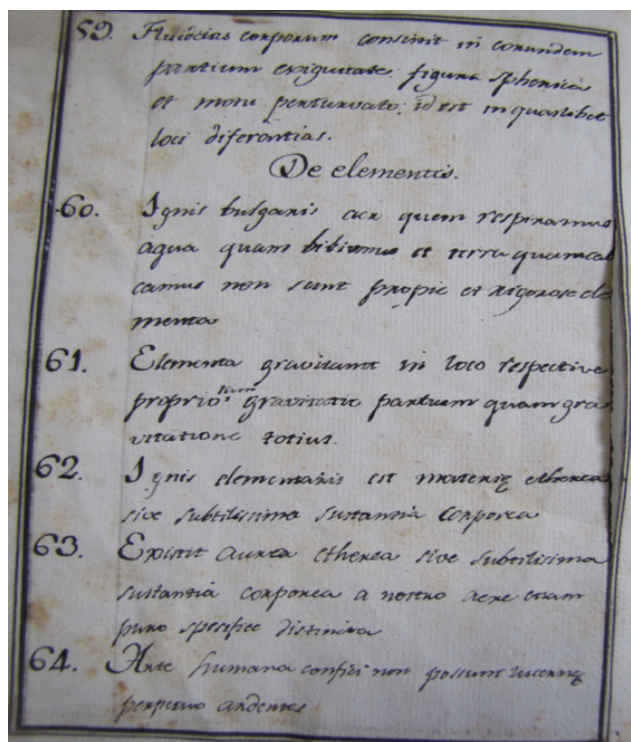 59. Fluiditas corporum consistit in eorundem
partium exiguitate figura spherica
et motu perturvato; id est in quaslibet
loci diferentias.
De elementis.
60. Ignis bulgaris aer quem respiramus
aqua quam bibimus et terra quam cal
camus non sunt propie et rigorose ele
menta
61. Elementa gravitant in loco respective
proprio tam gravitatie partium quam gra
vitatione totius.
62. Ignis elementaris est materię etherea
sive subtilissima sustantia corporea
63. Existit aurea etherea sive subtilisima
sustantia corporea a nostro aere etiam
puro spesifice distincta
64. Arte humana confici non possunt lucernę
perpetuo ardentes